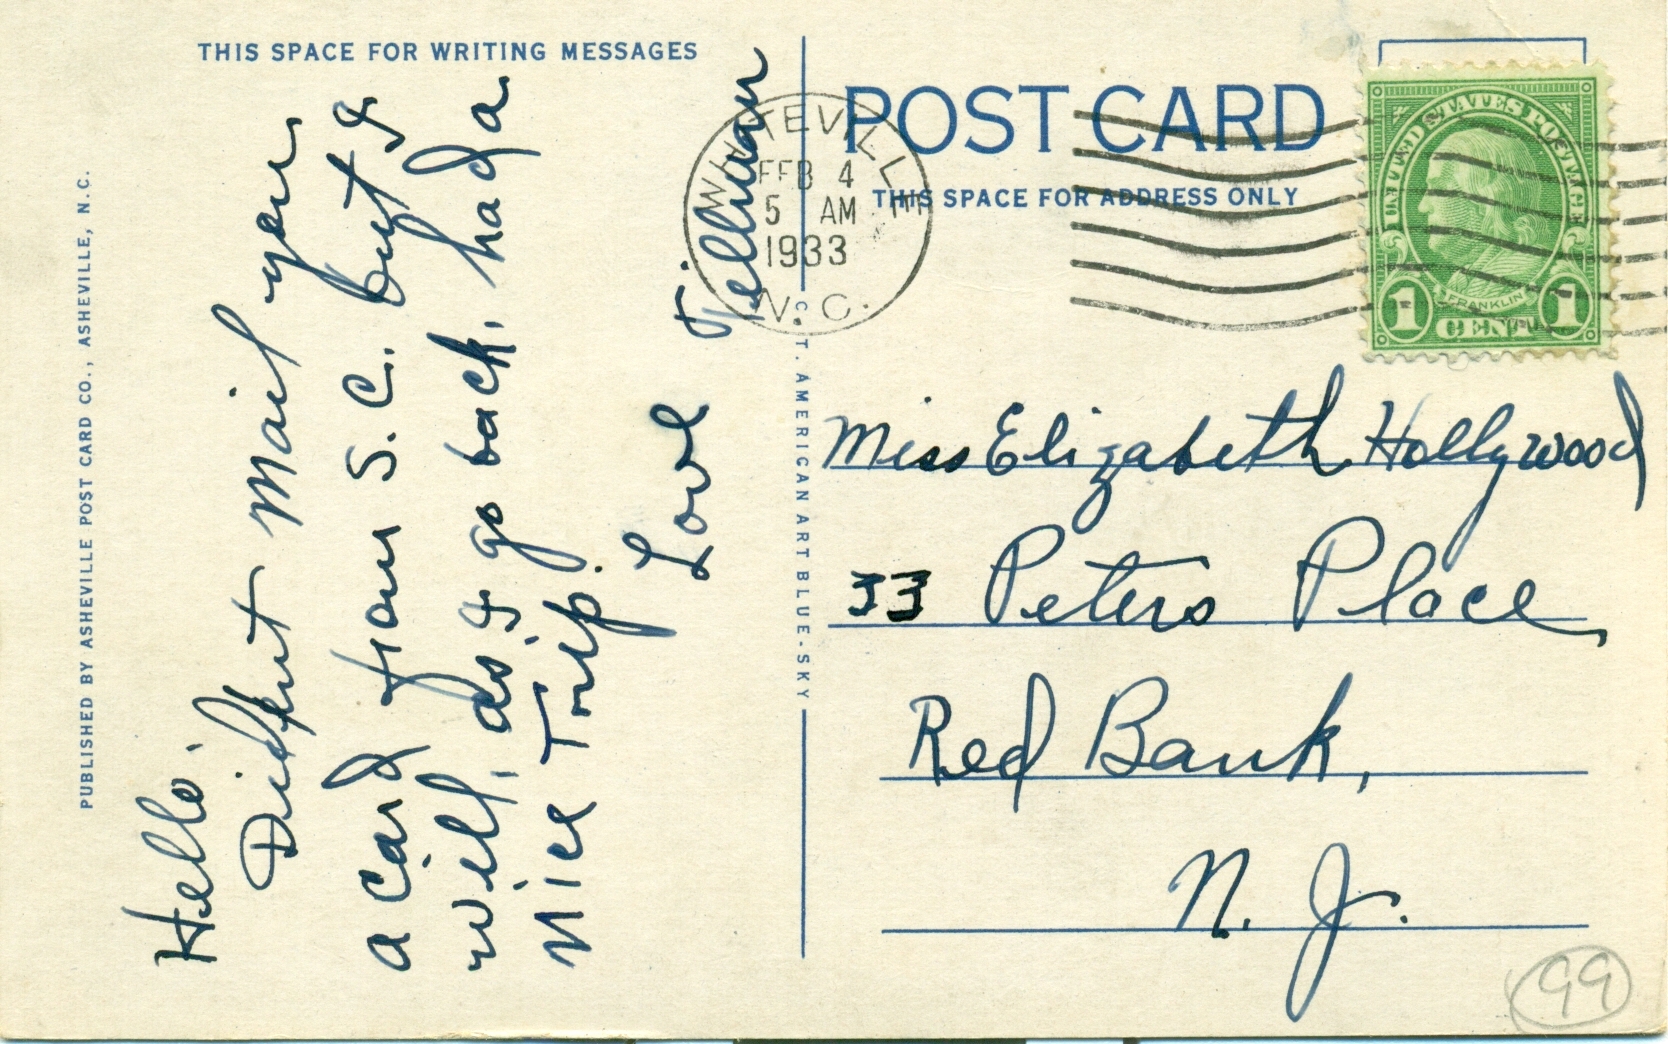 THIS SPACE FOR WRITING MESSAGES
PUBLISHED BY ASHEVILLE POST CARD CO., ASHEVILLE, N.C.
Hello.
Didn't mail you
a card from S.C. but I
will, as I go back, had a
nice Trip.
Love
C. T. AMERICAN ART BLUE-SKY
POST CARD
THIS SPACE FOR ADDRESS ONLY
WHITEVILLE
FEB 4
5 AM
1933
N.C.
UNITED STATES POSTAGE
FRANKLIN
1 CENT 1
Miss Elizabeth Hollywood
33 Peters Place
Red Bank,
N. J.
99